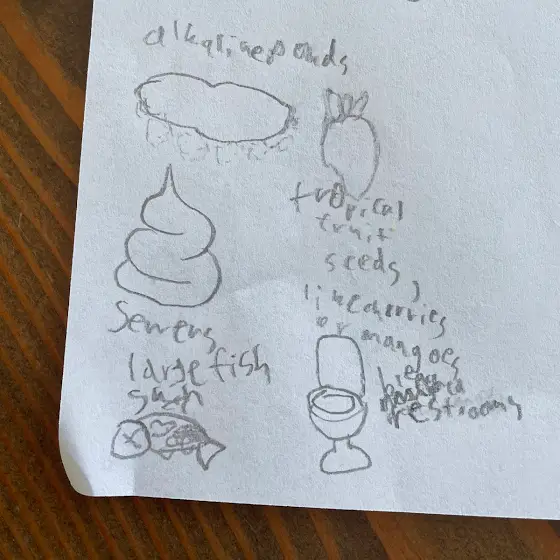 alkaline ponds
tropical
fruit
seeds,
like cherries
or mangoes
Sewers
large fish
such
restrooms